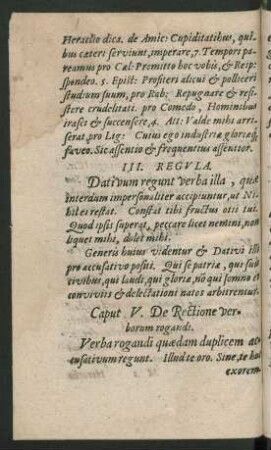 Heraclio dica. de Amic: Cupiditatibus, qui-
bus cæteri serviunt, imperare, 7. Tempori pa-
reamus pro Cæl: Promitto hoc vobis, & Reip:
spondeo. 5. Epist: Profiteri alicui & polliceri
studium suum, pro Rab; Repugnare & resi-
stere crudelitati. pro Comedo, Hominibus
irasci & succensere, 4. Att: Valde mihi arri-
serat, pro Lig: Cuius ego industriæ gloriæq́;
faveo. Sic assentio & frequentius assentior.
III. REGULA.
Dativum regunt verba illa, quæ
interdum impersonaliter accipiuntur, ut Ni-
hil es restat. Constat tibi fructus otii tui.
Quod ipsi superat, peccare licet nemini, non
liquet mihi, dolet mihi.
Generis huius videntur & Dativi illi
pro accusativo positi. Qui se patriæ, qui suis
civibus, qui laudi, qui gloriæ, nō qui somno et
conviviis & delectationi natos arbitrentur.
Caput V. De Rectione ver-
borum rogandi.
Verba rogandi quædam duplicem ac-
cusativum regunt. Illud te oro. Sine, te hoc
exorem